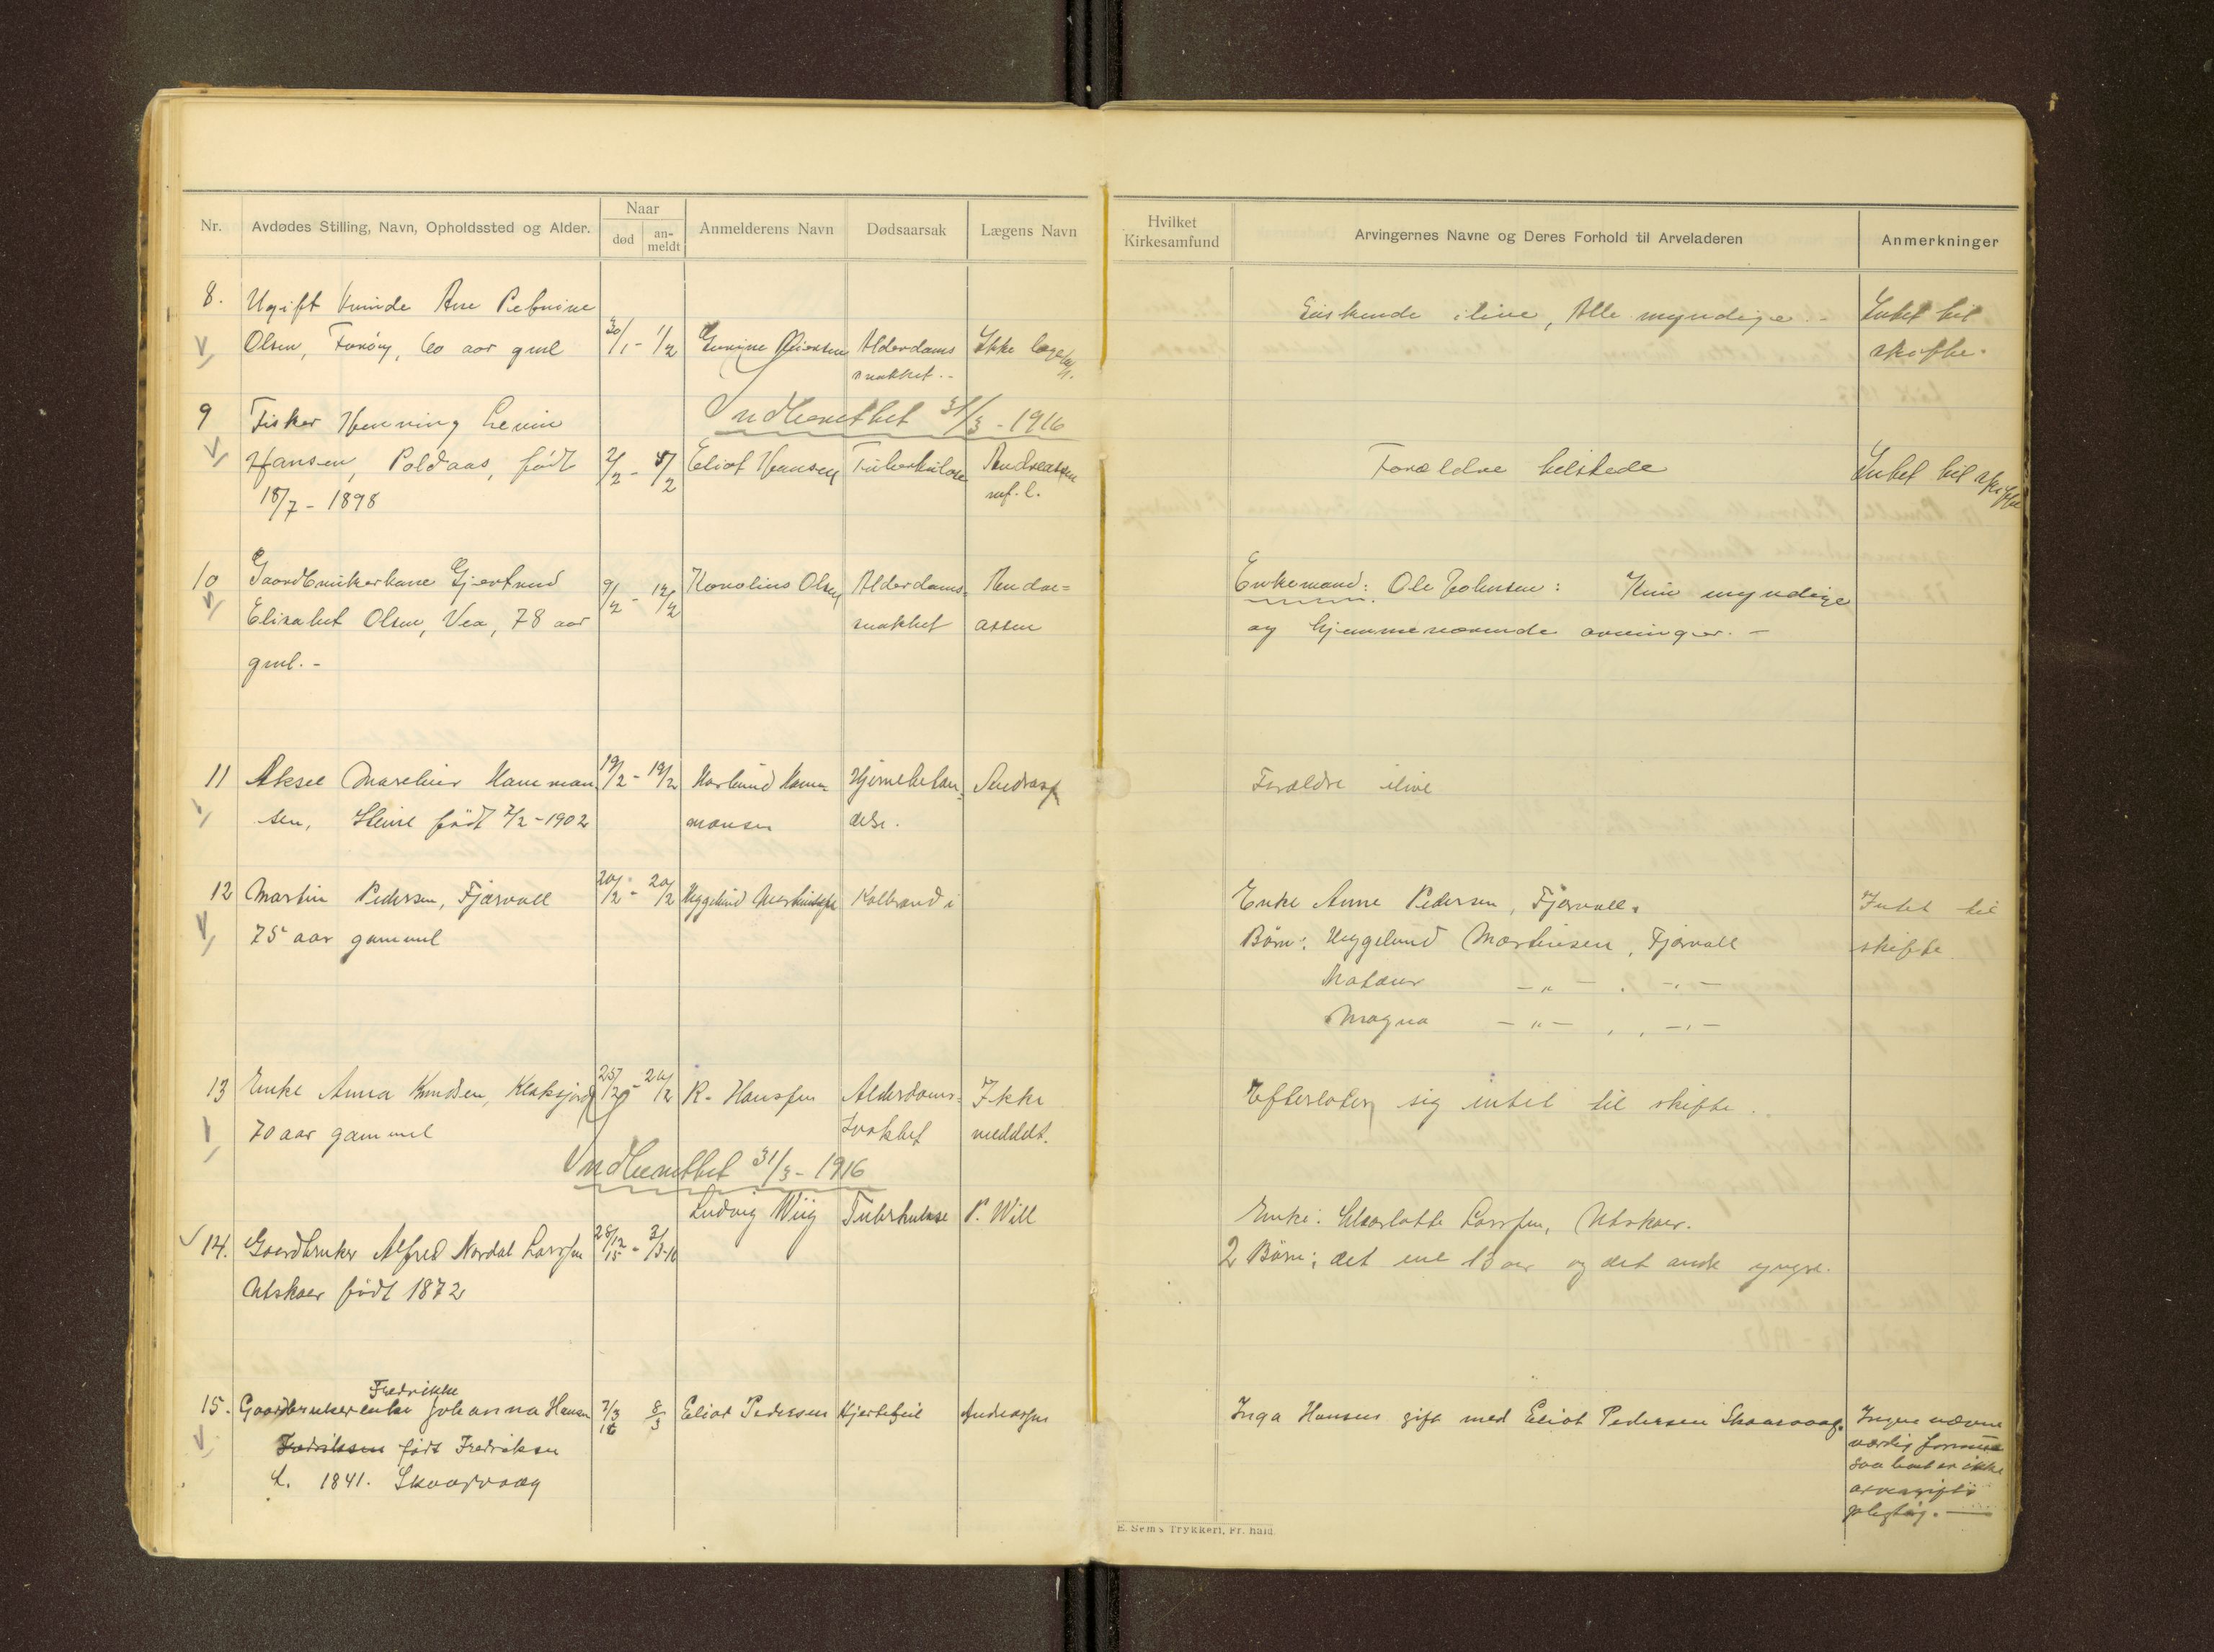 Nr. Avdødes Stilling, Navn, Opholdssted og Alder. Naar død an-meldt Anmelderens Navn Dødsaarsak Lægens Navn Hvilket Kirkesamfund Arvingernes Navne og Deres Forhold til Arveladeren Anmerkninger
8. Ugift kvinde Ane Petrine
Olsen, Forøy, 60 aar gml 30/1 - 1/2 Alderdoms Ikke
svakhet.-
ilive, Alle myndige. - Intet til
skifte.
9 Fisker Henning Levin
Indberettet 31/3 - 1916
Hansen, Poldaas, født 2/2 - 8/2 Eliot Hansen Tuberkulose Andreassen
18/7 - 1898
Forældre tilstede Intet til skifte
10 Gaardbrukerkone Gjertrud 9/2 - 12/2 Konolius Olsen Alderdoms- Andre=
Elisabet Olsen, Vea, 78 aar svakhet assen
gml. -
Enkemand: Ole Johnsen: Kun myndige
og hjemmeværende arvinger. -
11 Aksel Marelius Hamman 19/2 - 19/2 Hjernebetæn= Andreass
sen, født 7/2 - 1902 mansen delse.
Forældre ilive
12 Martin Pedersen, Fjærvoll 20/2 - 20/2 Hyggelund Martinsen Kolbrand i
75 aar gammel
Enke Anne Pedersen, Fjærvoll. Intet til
Børn: Hyggelund Martinsen, Fjærvoll skifte
- " - , - " -
Magna - " - , , - " -
13 Enke Anna Knudsen, Klaksjord 25/2 - 26/2 R. Hanssen Alderdoms= Ikke
70 aar gammel svakhet meddelt.
Efterlater sig intet til skifte.
Indberettet 31/3 - 1916
Ludvig Wiig Tuberkulose P. Will
14. Gaardbruker Alfred Nordal Larssen 28/12 15 - 3/3-16
Utskaer født 1872
Enke: Charlotte Larssen, Utskaer.
2 Børn; det ene 13 aar og det andre yngre.
Fredrikke
15. Gaardbrukerenke Johanna Hansen 7/3 16 8/3 Eliot Pedersen Hjertefeil Andreassen
Fredriksen født Fredriksen
d. 1841. Skaarvaag
Inga Hansen gift med Eliot Pedersen Skaarvaag. Ingen nævne
værdig formue
saa boet er ikke
arveavgifts
pligtig. -
E. Sem's Trykkeri, Fr.hald